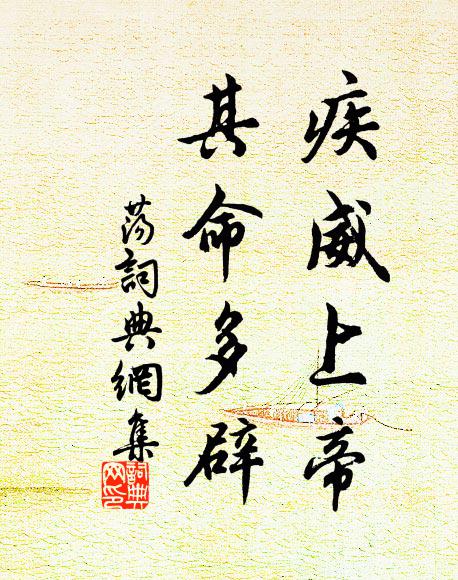 疾威上帝
其命多辟
荡詞典網集
詞典网印